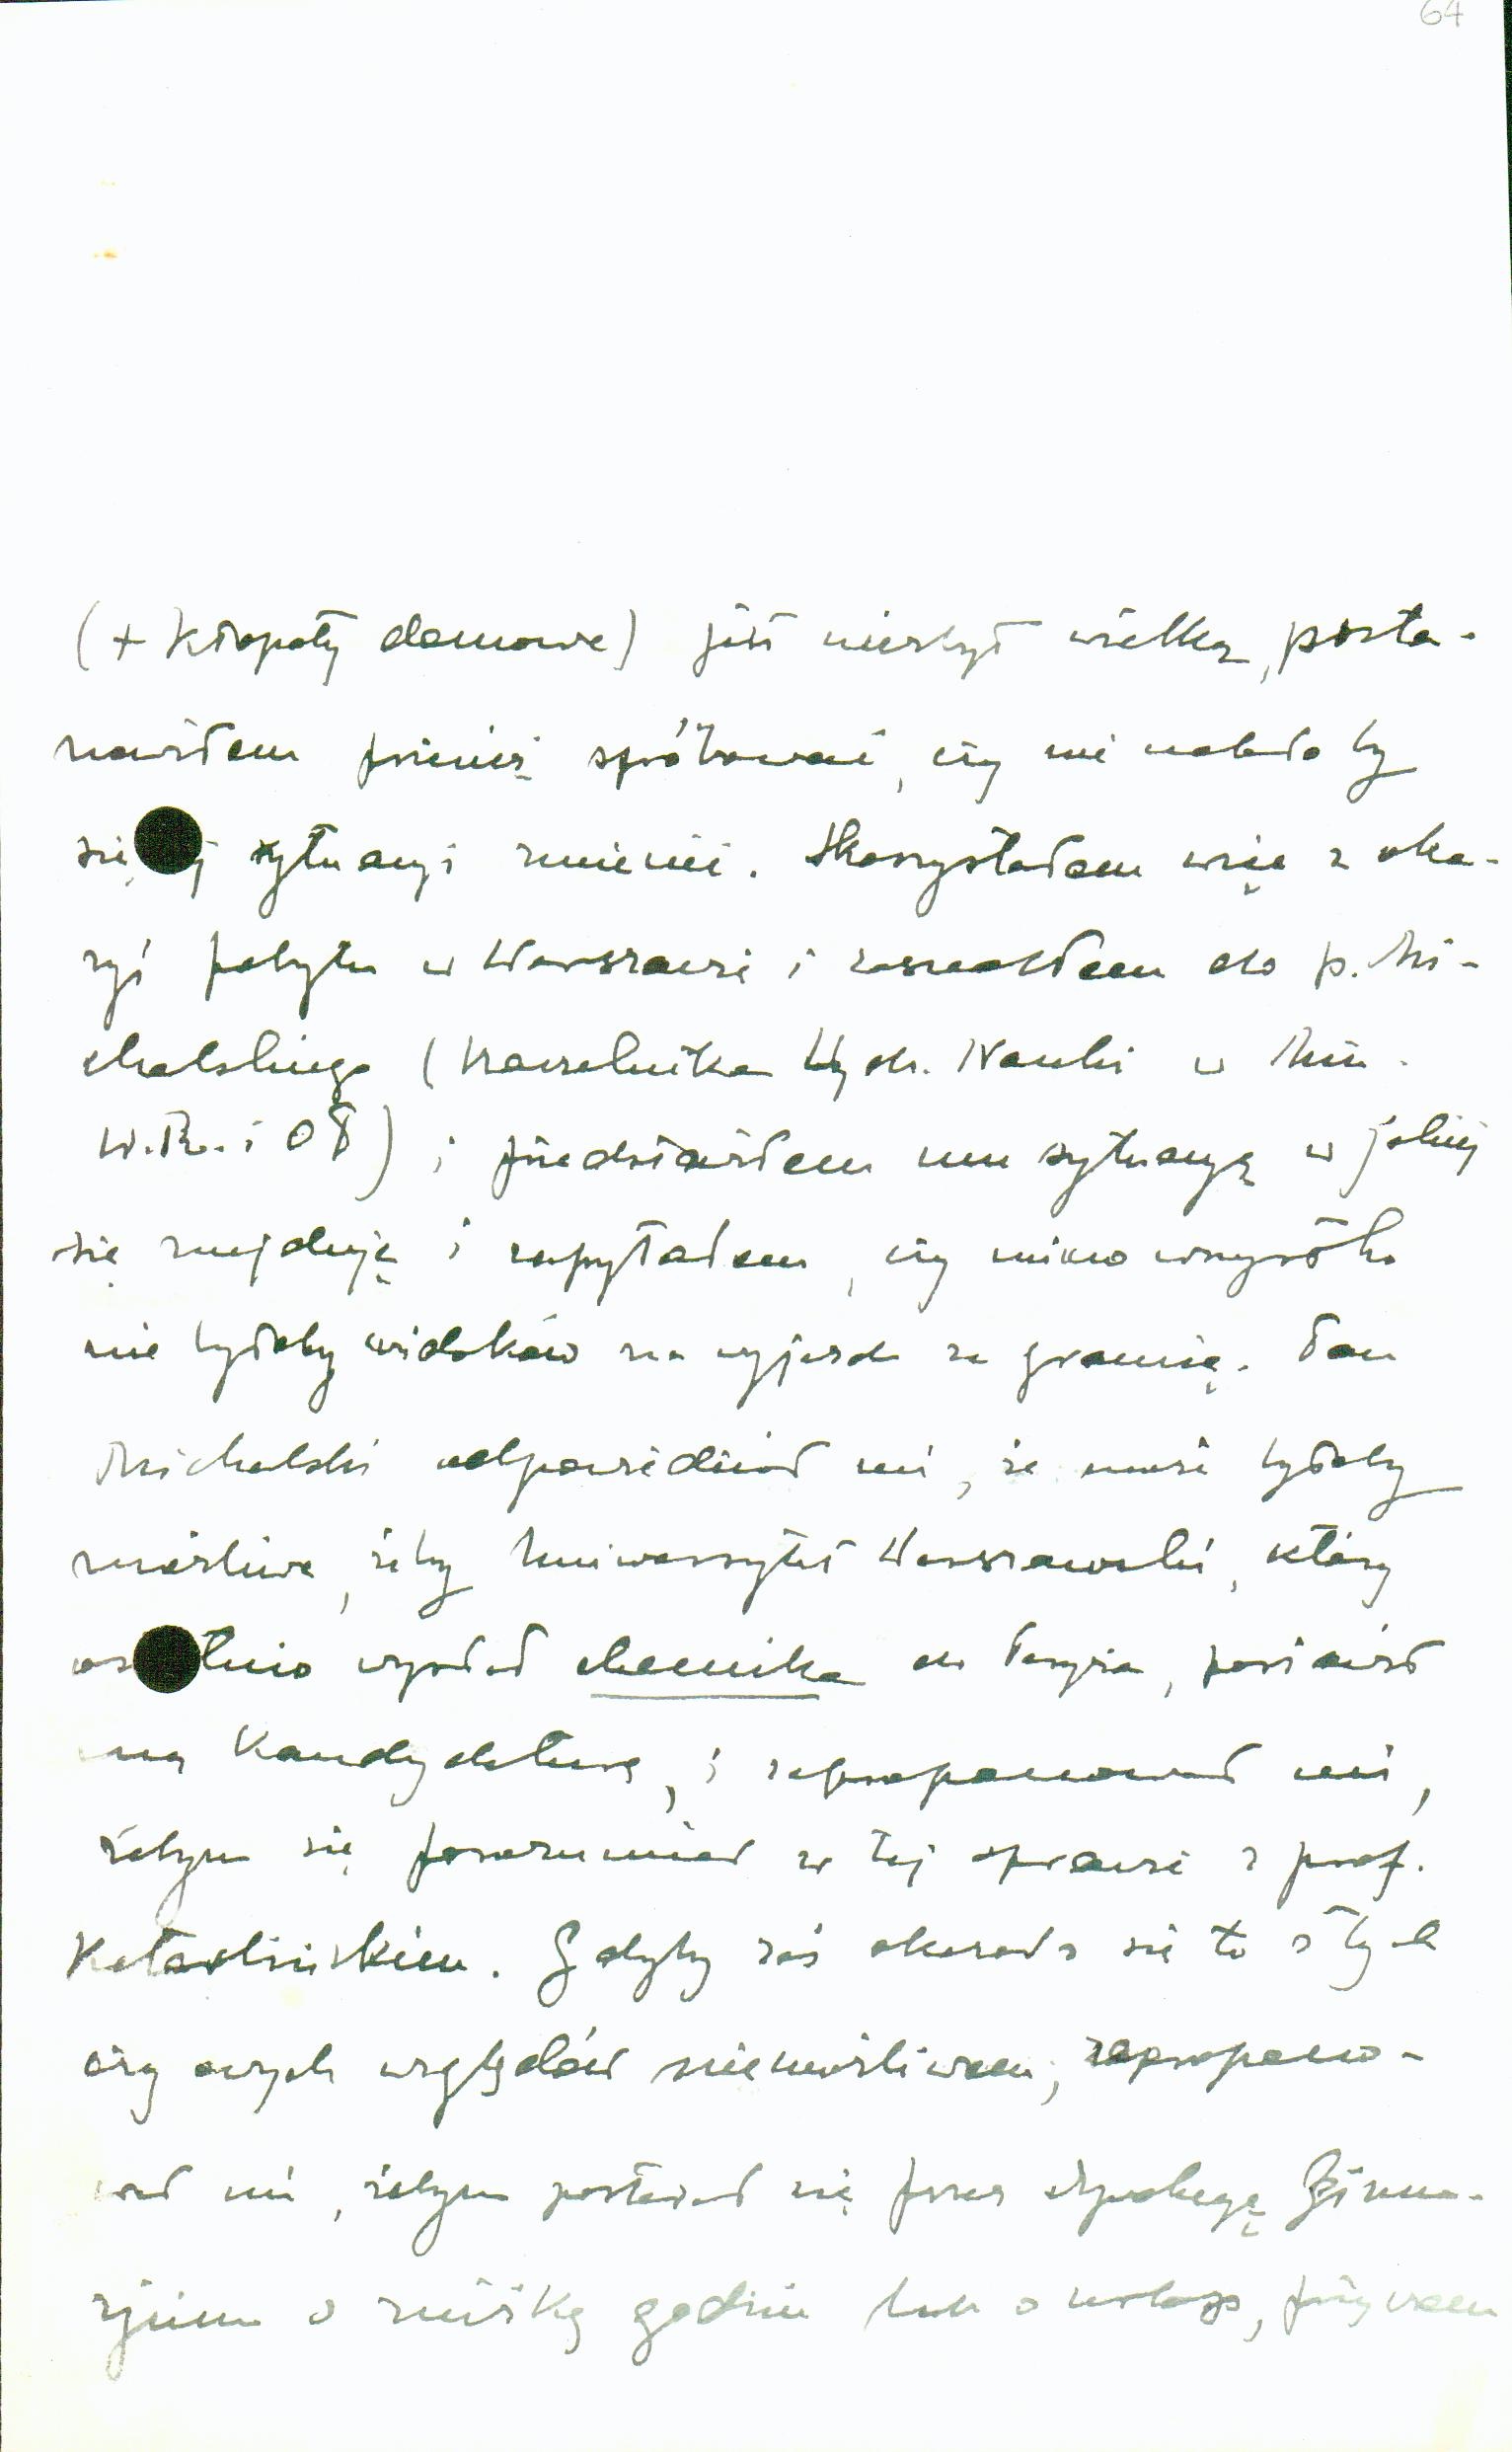 64
(+ kłopoty domowe) jest niezbyt wielką, posta-
nowiłem przecież spróbować, czy nie udało by
się tej sytuacyi zmienić. Skorzystałem więc z oka-
zyi pobytu w Warszawie i zaszedłem do p. Mi-
chalskiego (Naczelnika Wydz. Nauki w Min.
W.R. i OP) i przedstawiłem mu sytuacyę w jakiej
się znajduję i zapytałem, czy mimo wszystko
nie byłoby widoków na wyjazd za granicę. Pan
Michalski odpowiedział mi, że może byłoby
możliwe, żeby Uniwersytet Warszawski, który
ostatnio wysłał chemika do Paryża, postawił
mą kandydaturę, i zaproponował mi,
żebym się porozumiał w tej sprawie z prof.
Kotarbińskim. Gdyby zaś okazało się to z tych
czy owych względów niemożliwem, zapropono-
wał mi, żebym postarał się przez Dyrekcyę Gimna-
zjum o zniżkę godzin lub o urlop, przyczem